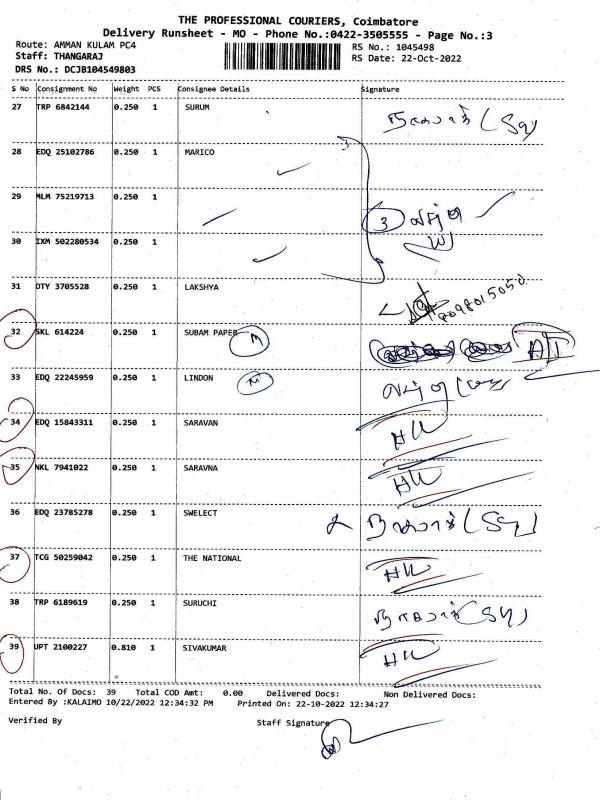 THE PROFESSIONAL COURIERS, Coimbatore
Delivery Runsheet - MO - Phone No.:0422-3505555 - Page No.:3
Route: AMMAN KULAM PC4
RS No.: 1045498
Staff: THANGARAJ
RS Date: 22-Oct-2022
DRS No.: DCJB104549803
S No Consignment No Weight PCS Consignee Details Signature
27 TRP 6842144 0.250 1 SURUM
28 EDQ 25102786 0.250 1 MARICO
29 MLM 75219713 0.250 1
3
30 IXM 502280534 0.250 1
31 OTY 3705528 0.250 1 LAKSHYA
8098015050
32 SKL 614224 0.250 1 SUBAM PAPER M
33 EDQ 22245959 0.250 1 LINDON M
34 EDQ 15843311 0.250 1 SARAVAN
35 NKL 7941022 0.250 1 SARAVNA
36 EDQ 23785278 0.250 1 SWELECT
37 TCG 50259042 0.250 1 THE NATIONAL
38 TRP 6189619 0.250 1 SURUCHI
39 UPT 2100227 0.810 1 SIVAKUMAR
Total No. Of Docs: 39 Total COD Amt: 0.00 Delivered Docs: Non Delivered Docs:
Entered By :KALAIMO 10/22/2022 12:34:32 PM Printed On: 22-10-2022 12:34:27
Verified By Staff Signature